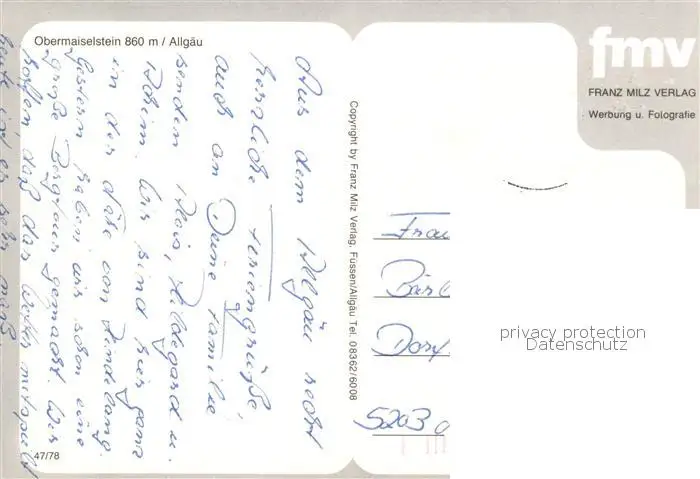 Obermaiselstein 860 m / Allgäu
Aus dem Allgäu recht
herzliche Feriengrüße,
auch an Deine Familie
senden Alois, Hildegard u.
Achim. Wir sind hier ganz
in der Nähe von Hindelang.
Gestern haben wir schon eine
große Bergtour gemacht. Wir
hoffen daß das Wetter mitspielt
heute ist es sehr
47/78
Copyright by Franz Milz Verlag, Füssen/Allgäu Tel. 08362/6008
fmv
FRANZ MILZ VERLAG
Werbung u. Fotografie
Frau
Bärb
Dorf
5203
privacy protection
Datenschutz